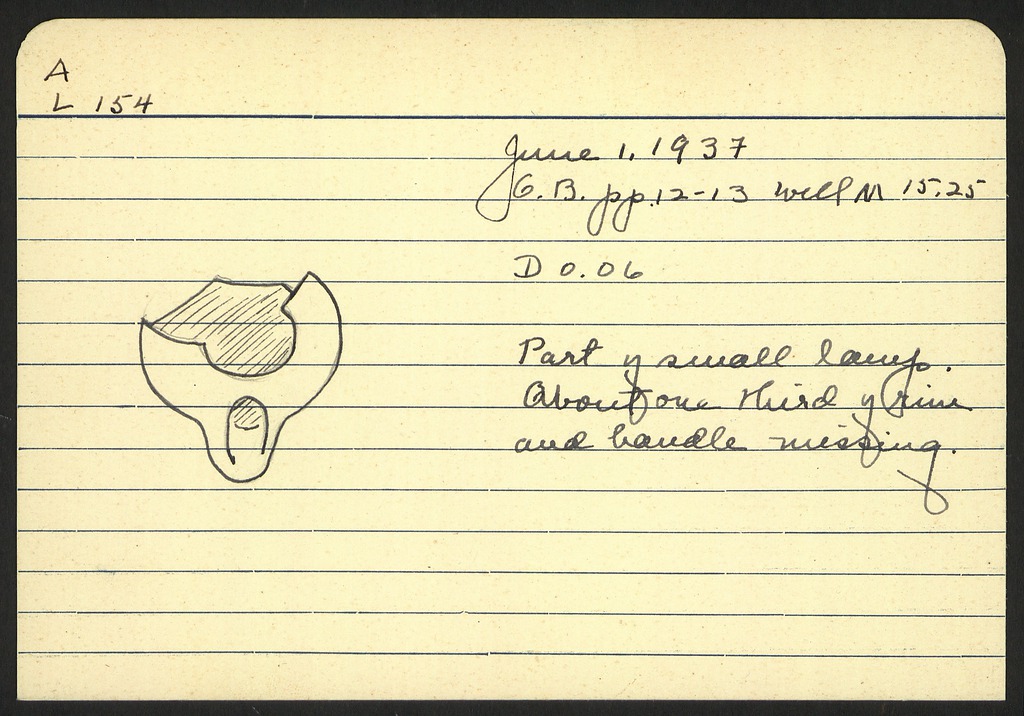 A
L 154
June 1, 1937
G.B. pp. 12-13 Well M 15.25
D 0.06
Part of small lamp.
About one third of rim
and handle missing.